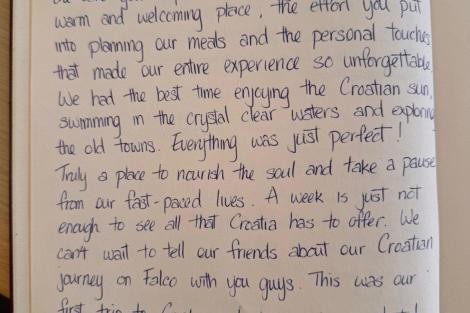 warm and welcoming place, the effort you put
into planning our meals and the personal touches
that made our entire experience so unforgettable
We had the best time enjoying the Croatian sun,
swimming in the crystal clear waters and exploring
the old towns. Everything was just perfect!
Truly a place to nourish the soul and take a pause
from our fast-paced lives. A week is just not
enough to see all that Croatia has to offer. We
can't wait to tell our friends about our Croatian
journey on Falco with you guys. This was our
first trip to